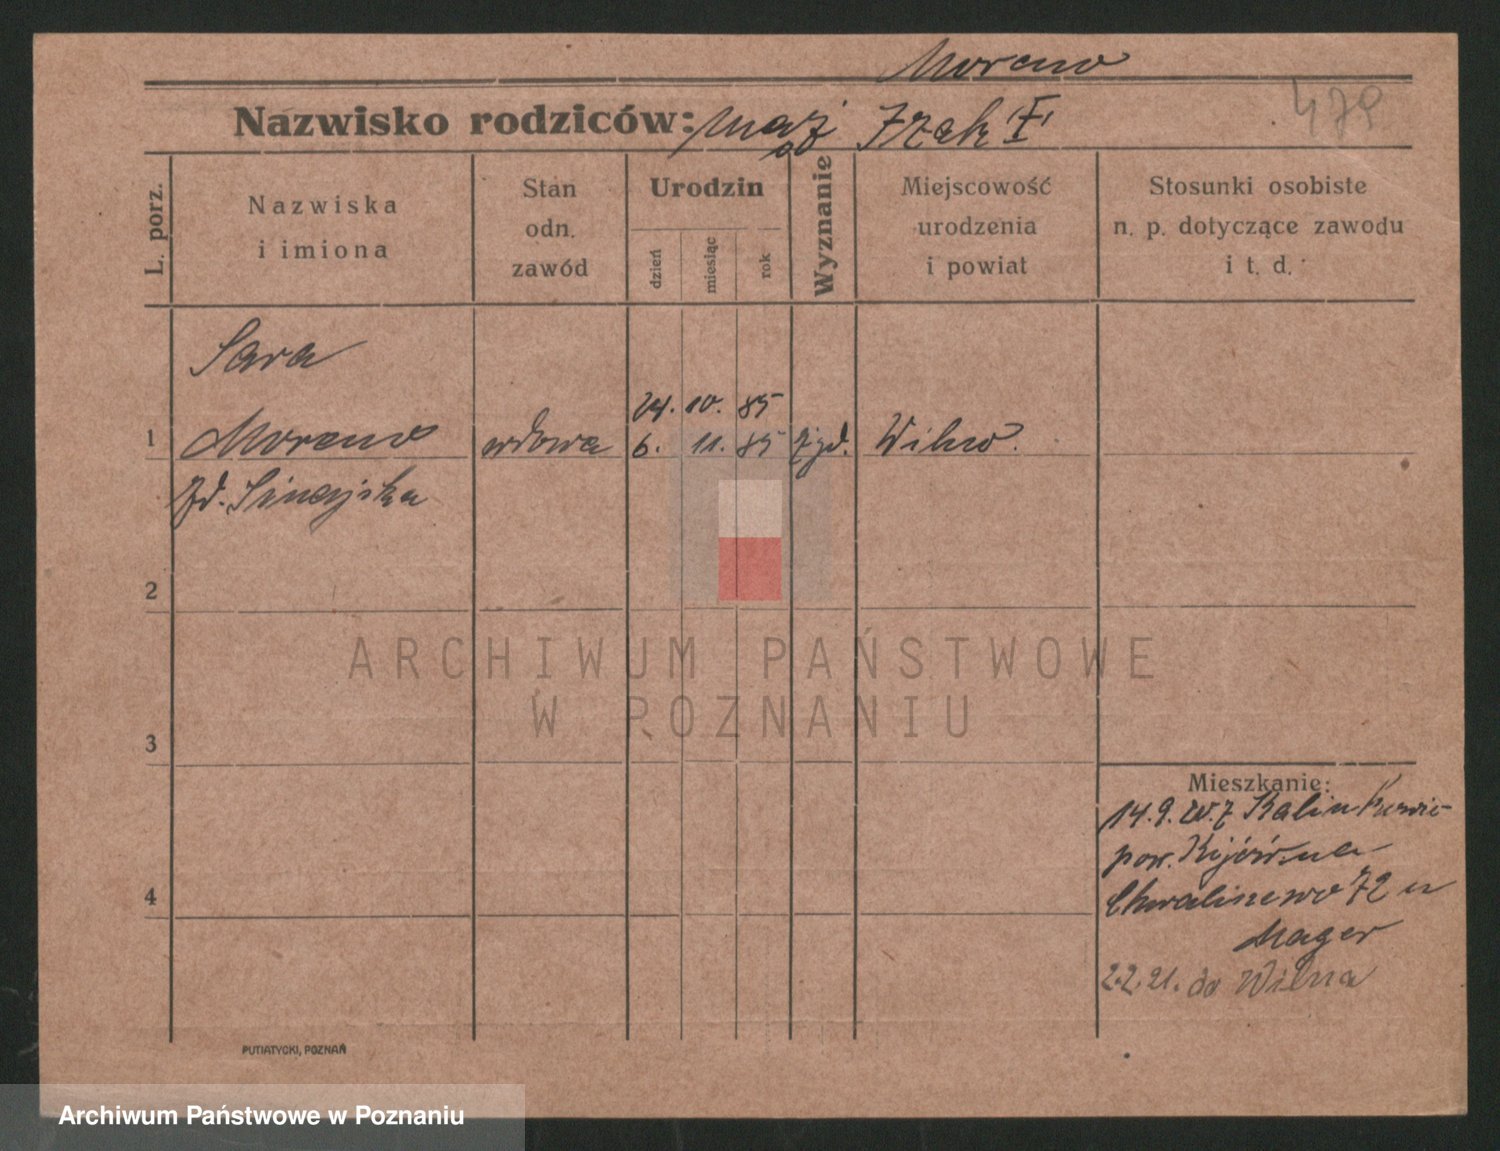 Moreno
479
Nazwisko rodziców: mąż Izak †
L. porz.
Nazwiska
i imiona
Stan
odn.
zawód
Urodzin
dzień
miesiąc
rok
Wyznanie
Miejscowość
urodzenia
i powiat
Stosunki osobiste
n. p. dotyczące zawodu
i t. d.
Sara
24. 10. 85
1 Moreno wdowa 6. 11. 85 żyd. Wilno.
zd. Sinajska
2
ARCHIWUM PAŃSTWOWE
W POZNANIU
3
Mieszkanie:
14.9. z
pow.
4
72 u
Mager
2.2.21. do Wilna
PUTIATYCKI, POZNAŃ
Archiwum Państwowe w Poznaniu